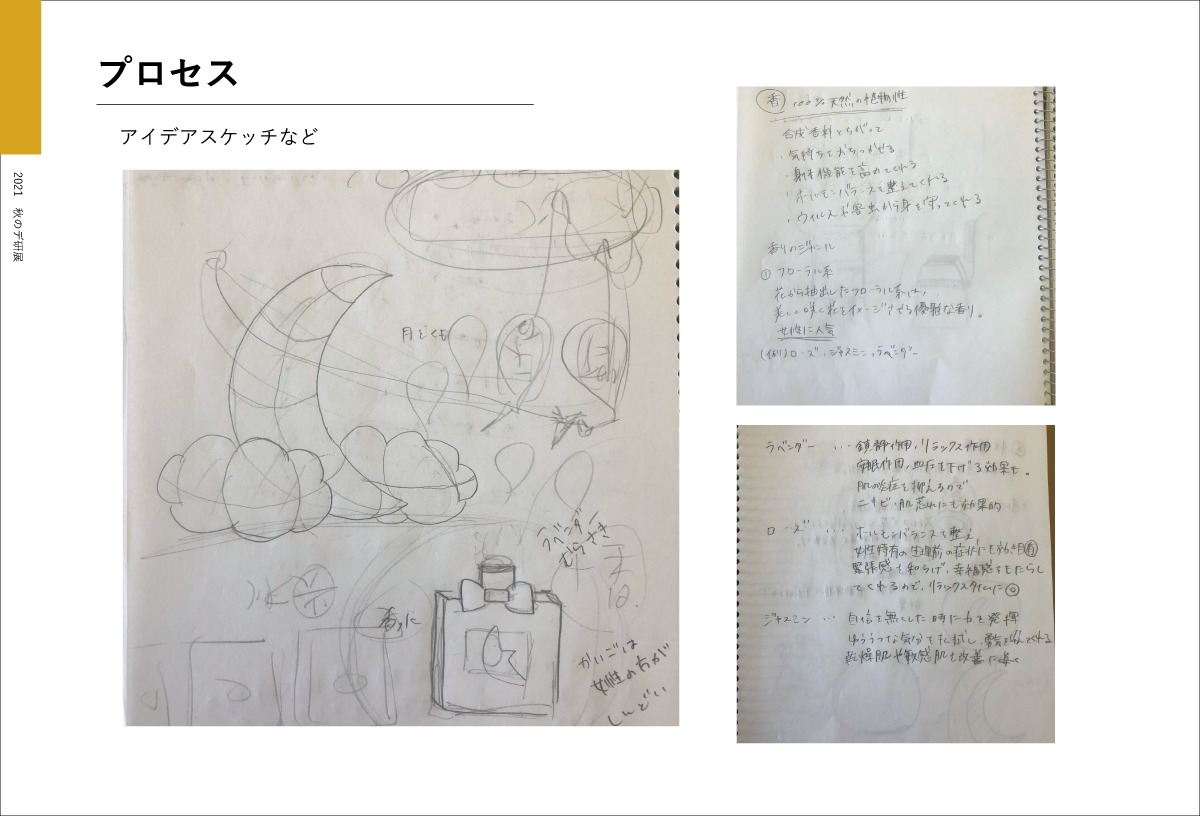 プロセス
アイデアスケッチなど
2021 秋のデ研展
月とくも
ラベンダー
むらさき
香水
かいごは
女性の方が
しんどい
香 100%天然の植物性
合成香料とちがって
・気持ちをおちつかせる
・身体機能を高めてくれる
・ホルモンバランスを整えてくれる
・ウィルスや害虫から身を守ってくれる
香りのジャンル
① フローラル系
花から抽出したフローラル系は、
美しく咲く花をイメージさせる優雅な香り。
女性に人気
(例)ローズ、ジャスミン、ラベンダー
ラベンダー ・・・ 鎮静作用、リラックス作用
安眠作用、血圧を下げる効果も。
肌の炎症を抑えるので
ニキビ・肌荒れにも効果的
ローズ ・・・ ホルモンバランスを整え
女性特有の生理前の症状にも効果有
緊張感を和らげ、幸福感をもたらし
てくれるので、リラックスタイムに◎
ジャスミン ・・・ 自信を無くした時に力を発揮
ゆううつな気分を払拭し、勇気を
乾燥肌や敏感肌を改善に導く